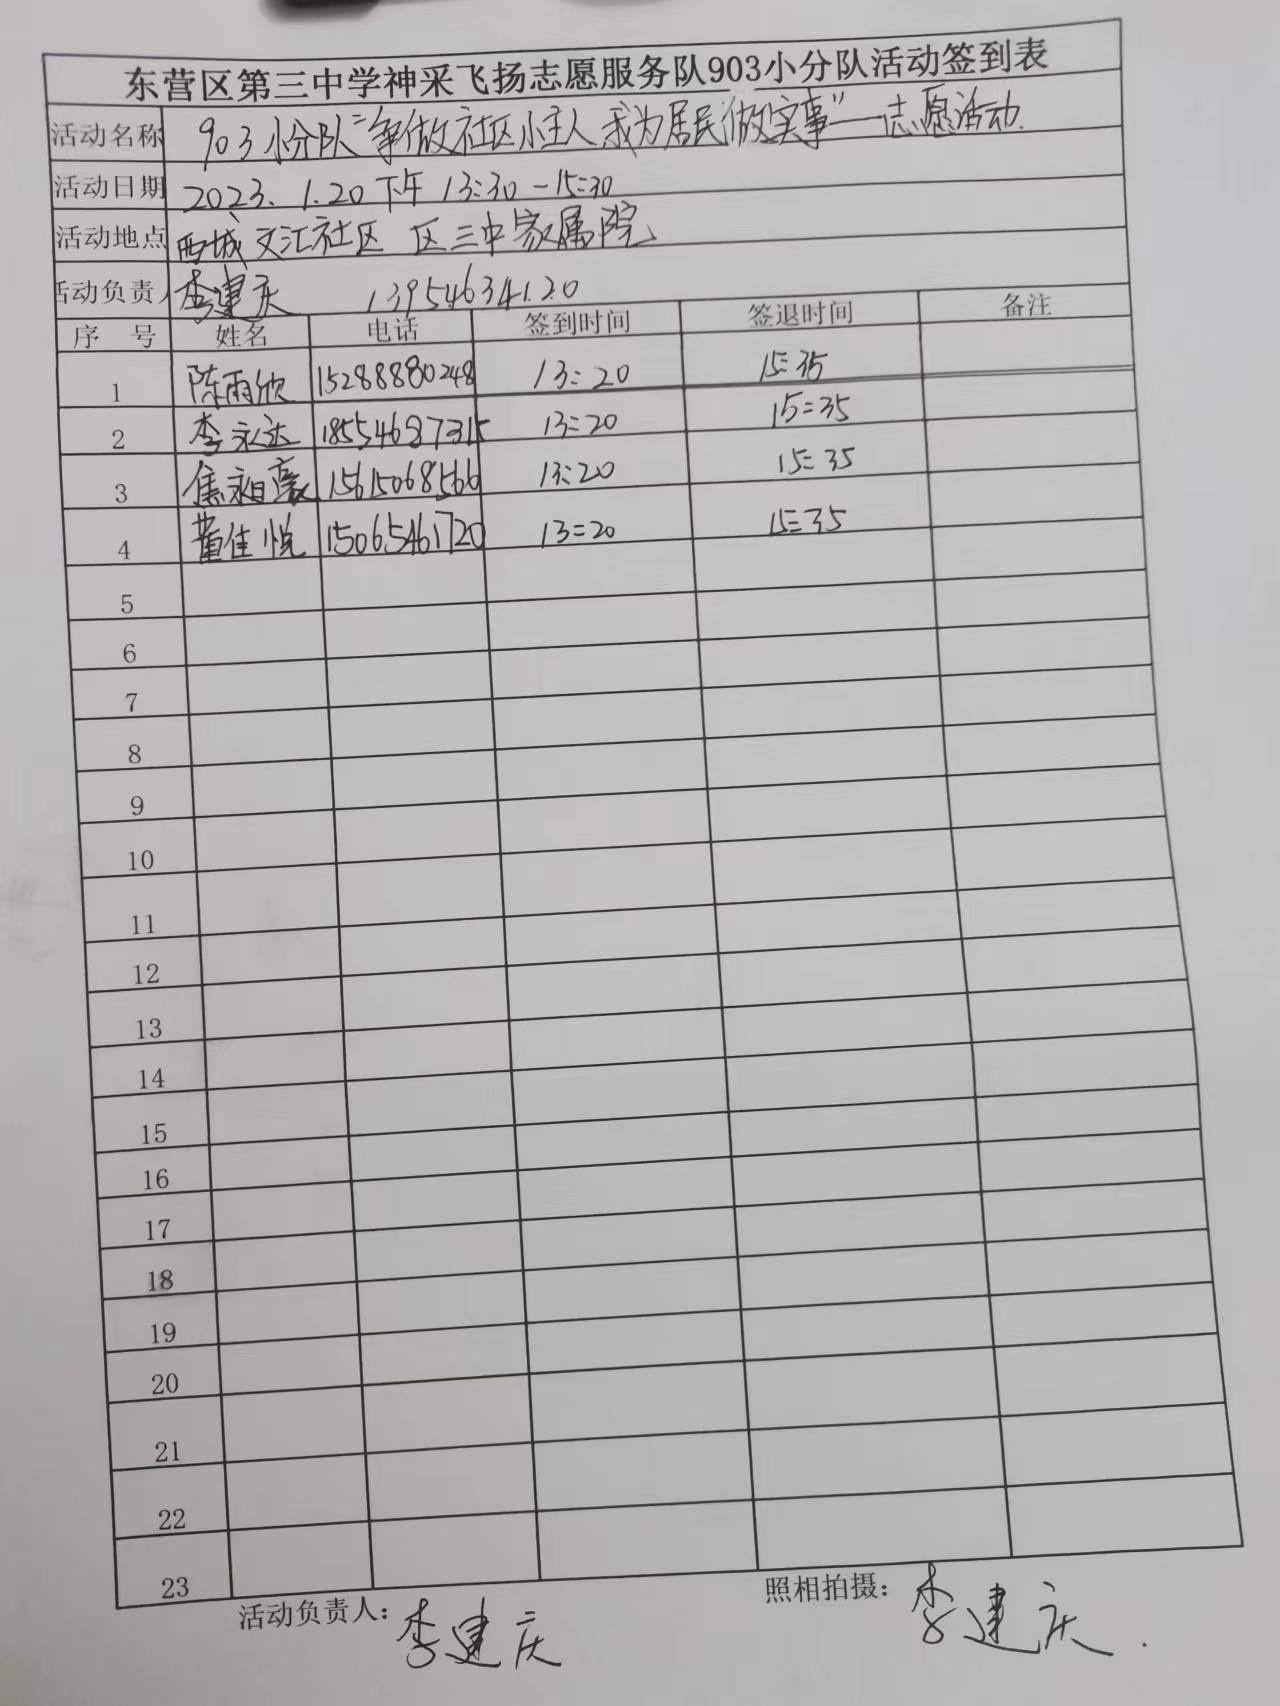 东营区第三中学神采飞扬志愿服务队903小分队活动签到表
活动名称 903小分队“争做社区小主人 我为居民做实事”—志愿活动.
活动日期 2023.1.20下午13:30-15:30
活动地点 西城文汇社区 区三中家属院
活动负责人 李建庆 13954634120
序 号 姓名 电话 签到时间 签退时间 备注
1 陈雨欣 15288880248 13:20 15:35
2 李永达 18554687315 13:20 15:35
3 焦昶豪 15615068566 13:20 15:35
4 董佳悦 15065461720 13:20 15:35
5
6
7
8
9
10
11
12
13
14
15
16
17
18
19
20
21
22
23
活动负责人: 李建庆 照相拍摄: 李建庆.